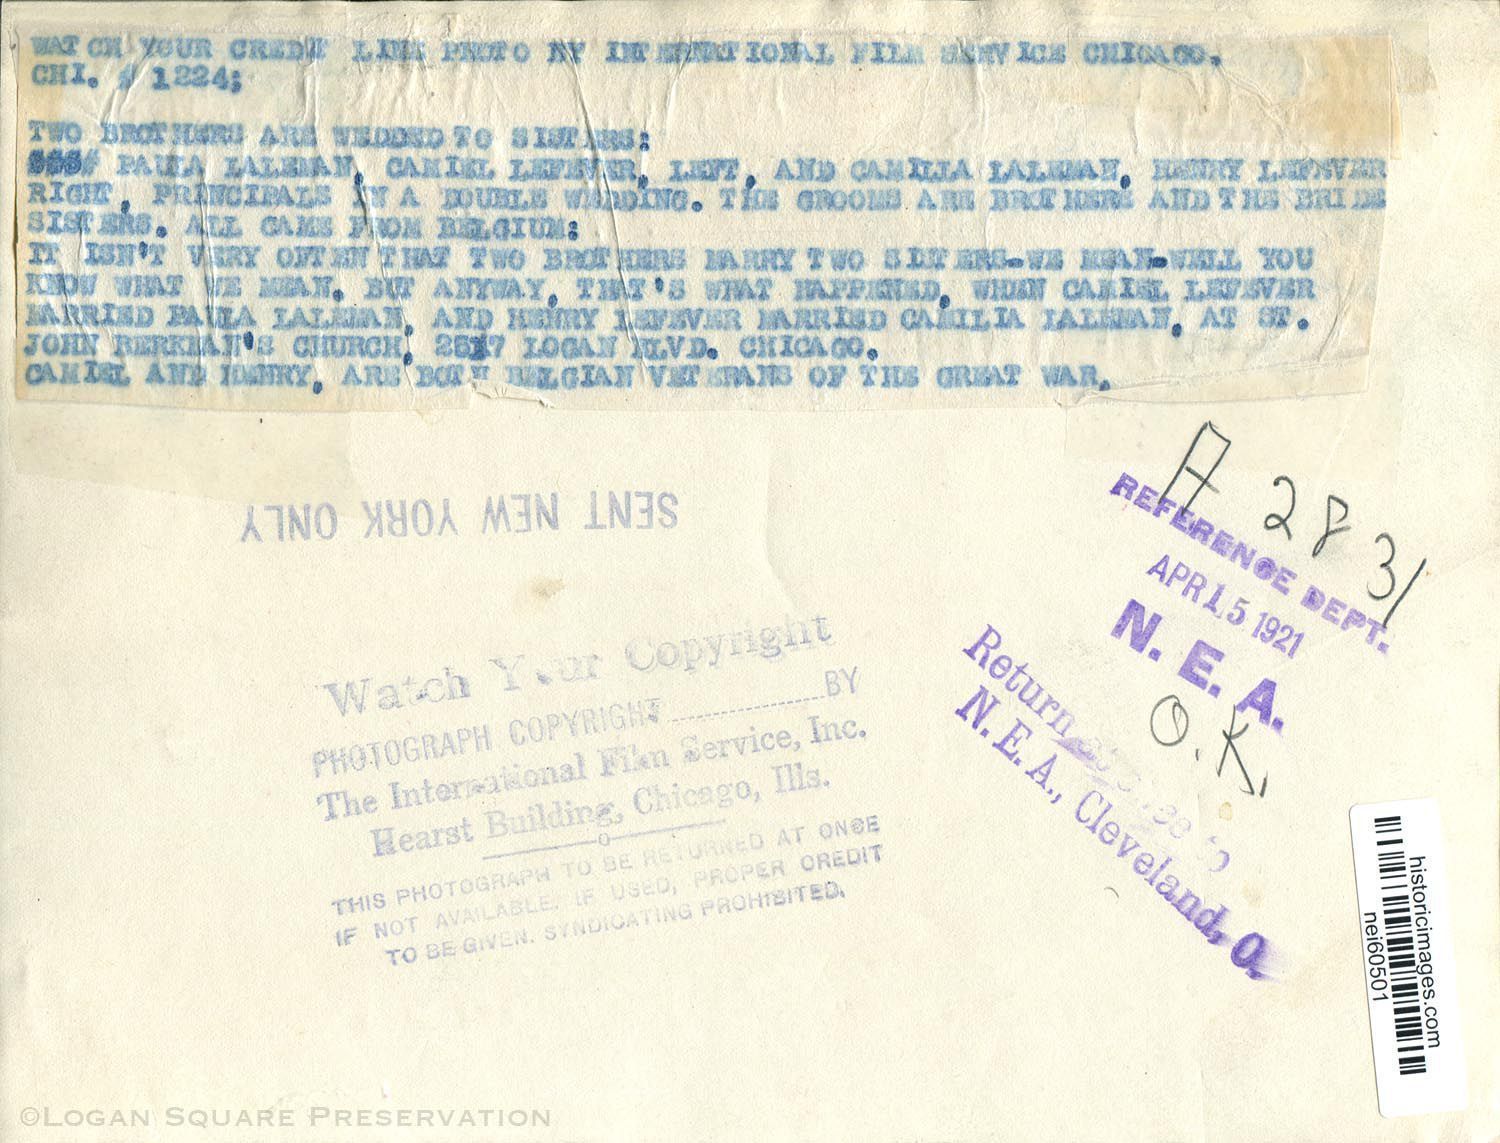 WATCH YOUR CREDIT LINE PHOTO BY INTERNATIONAL FILM SERVICE CHICAGO.
CHI. # 1224;
TWO BROTHERS ARE WEDDED TO SISTERS:
PAULA LALEMAN, CAMIEL LEFEVER, LEFT, AND CAMILIA LALEMAN, HENRY LEFEVER
RIGHT, PRINCIPALS IN A DOUBLE WEDDING. THE GROOMS ARE BROTHERS AND THE BRIDE
SISTERS. ALL CAME FROM BELGIUM:
IT ISN'T VERY OFTEN THAT TWO BROTHERS MARRY TWO SISTERS-WE MEAN-WELL YOU
KNOW WHAT WE MEAN. BUT ANYWAY, THAT'S WHAT HAPPENED, WHEN CAMIEL LEFEVER
MARRIED PAULA LALEMAN, AND HENRY LEFEVER MARRIED CAMILIA LALEMAN, AT ST.
JOHN BERKMAN'S CHURCH, 2517 LOGAN BLVD. CHICAGO.
CAMIEL AND HENRY, ARE BOTH BELGIAN VETERANS OF THE GREAT WAR.
SENT NEW YORK ONLY
A 2831
REFERENCE DEPT.
APR 15 1921
N. E. A.
O.K.
Return
N. E. A., Cleveland, O.
Watch Your Copyright
PHOTOGRAPH COPYRIGHT BY
The International Film Service, Inc.
Hearst Building, Chicago, Ills.
THIS PHOTOGRAPH TO BE RETURNED AT ONCE
IF NOT AVAILABLE. IF USED, PROPER CREDIT
TO BE GIVEN. SYNDICATING PROHIBITED.
historicimages.com
nei60501
©LOGAN SQUARE PRESERVATION